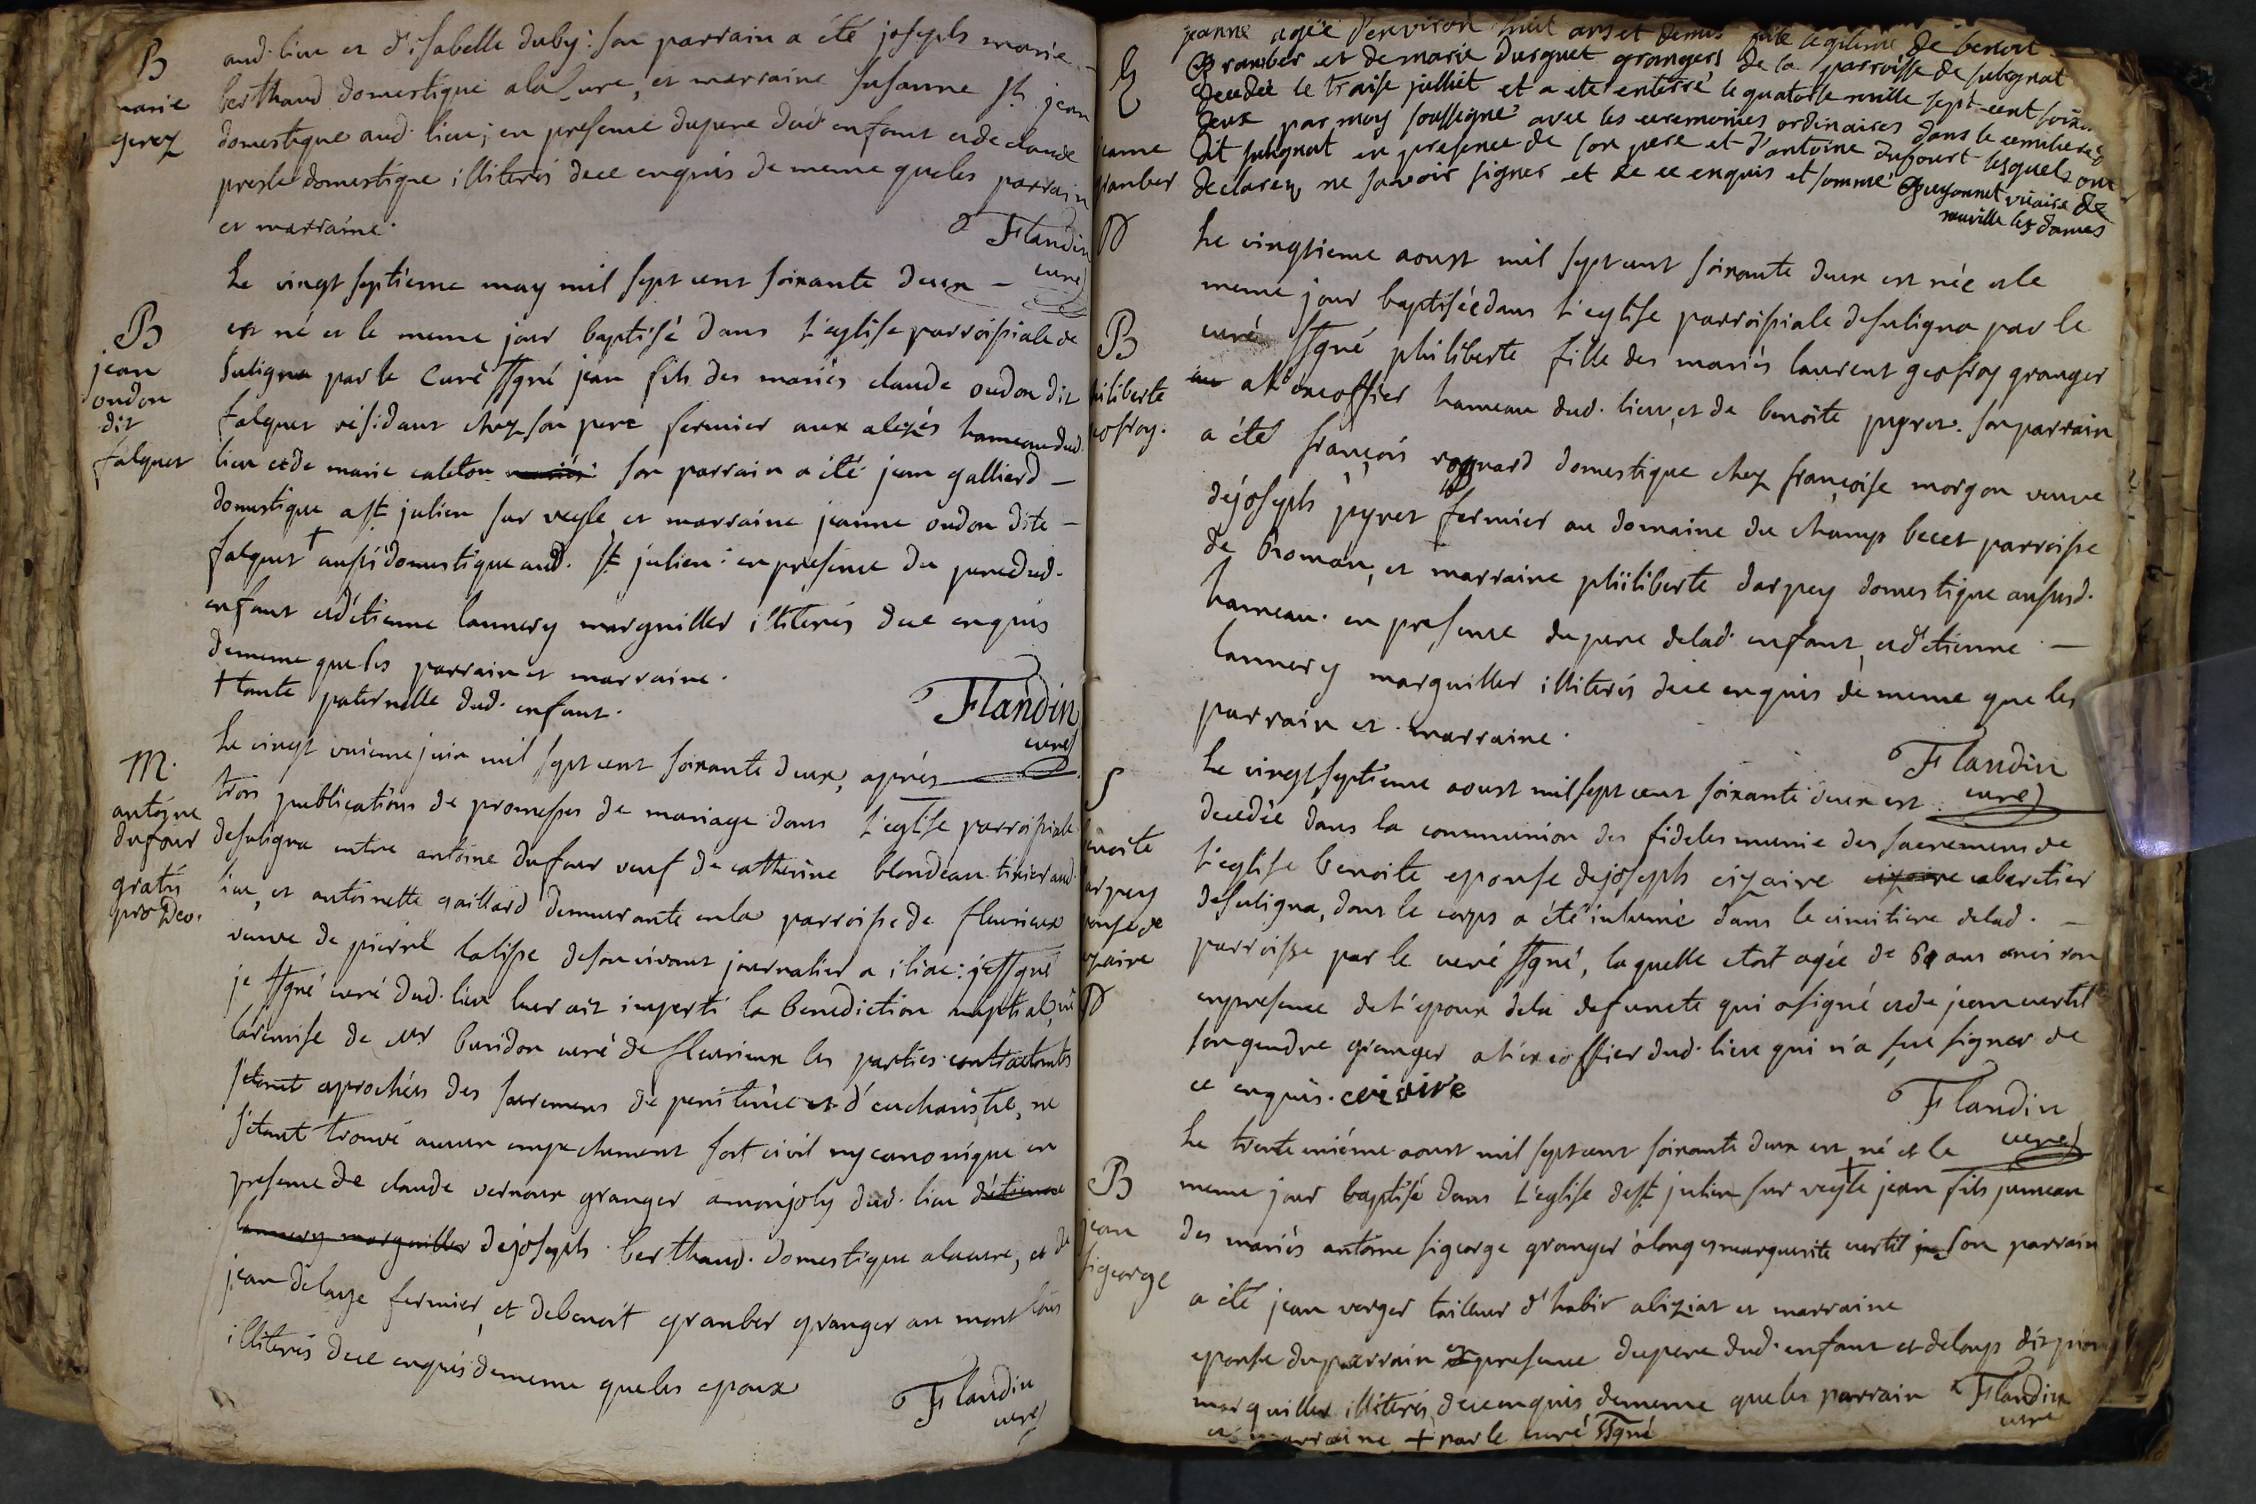 B
marie
gerez
aud. lieu et d'isabelle duby: son parrain a été joseph marie
berthaud domestique a la Cure, et marraine susanne St jean
domestique aud. lieu; en presence du pere dud. enfant et de claude
presle domestique illiterés de ce enquis de meme que les parrain
et marraine.
Flandin
curé
B
jean
oudon
dit
falquet
Le vingt septieme may mil sept cent soixante deux –
est né et le meme jour baptisé dans l'eglise parroissiale de
Suligna par le Curé ssgné jean fils des mariés claude oudon dit
falquet résidant chez son pere fermier aux alezés hameau dud.
lieu et de marie caleton son parrain a été jean galliard –
domestique a st julien sur veyle et marraine jeanne oudon dite –
falquet + aussi domestique aud. st julien: en presence du pere dud.
enfant et d'étienne lannery marguiller illiterés de ce enquis
de meme que les parrain et marraine.
+ tante paternelle dud. enfant.
Flandin
curé
M.
antoine
dufour
gratis
pro Deo.
Le vingt unieme juin mil sept cent soixante deux, aprés
trois publications de promesses de mariage dans l'eglise parroissiale
de suligna entre antoine dufour veuf de catherine blondeau tixier aud.
lieu, et antoinette gaillard demeurante en la parroisse de fleurieux
veuve de pierre laliffe de son vivant journalier a iliac: je ssgné
je ssgné curé dud. lieu leur ait imparti la benediction nuptial, vû
la remise de mr buridon curé de fleurieux les parties contractantes
s'etant aprochées des sacremens de penitence et d'eucharistie, ne
s'etant trouvé aucun empechement soit civil ny canonique en
presence de claude vernoux granger a monjoly dud. lieu d'étienne
lannery marguiller de joseph berthaud domestique a la cure, et de
jean delaye fermier, et de benoit granber granger au mont tous
illiterés de ce enquis de meme que les epoux
Flandin
curé
jeanne
granber
D
jeanne agée d'environ huit ans et demis fille legitime de benoit
Granber et de marie Durquet grangers de la parroisse de sulignat
decedée le traise julliet et a eté enterré le quatorse mille sept cent soixante
deux par moy soussigné avec les ceremonies ordinaires dans le cemitiere du
dit sulignat en presence de son pere et d'antoine dufourt lesquels ont
declarez ne savoir signer et de ce enquis et sommé Guyonnet vicaire de
neuville les dames
B
philiberte
geofray.
Le vingtieme aoust mil sept cent soixante deux est née et le
meme jour baptisée dans l'eglise parroissiale de suligna par le
curé ssgné philiberte fille des mariés laurent geofray granger
a l'excoffier hameau dud. lieu, et de benoite pyret. son parrain
a été françois domestique chez françoise morgon veuve
de joseph pyret fermier au domaine du champ becet parroisse
de Roman, et marraine philiberte darpey domestique au susd.
hameau. en presence du pere de lad. enfant, et d'etienne –
lannery marguiller illiterés de ce enquis de meme que les
parrain et marraine.
Flandin
curé
S
benoite
darpey
eponse de
cizaire
D
Le vingt septieme aoust mil sept cent soixante deux est
decedée dans la communion des fideles munie des sacremens de
l'eglise benoite eponse de joseph cizaire cizaire cabaretier
de suligna, dont le corps a été inhumé dans le cimitiere de lad. –
parroisse par le curé ssgné, laquelle etoit agée de 60 ans environ
en presence de l'epoux de la defuncte qui a signé et de jean vertil
son gendre granger a l'excoffier dud. lieu qui n'a sçu signer de
ce enquis. ceisire
Flandin
curé
B
jean
figeorge
Le trente unième aoust mil sept cent soixante deux est né et le
meme jour baptisé dans l'eglise de st julien sur veyle + jean fils jumeau
des mariés antoine figeorge granger a longes marguerite vertil son parrain
a été jean verger tailleur d'habit a biziat et marraine
eponse du parrain en presence du pere dud. enfant et de loup dit pion
marguiller illiterés, de ce enquis de meme que les parrain
et marraine + par le curé ssgné
Flandin
curé